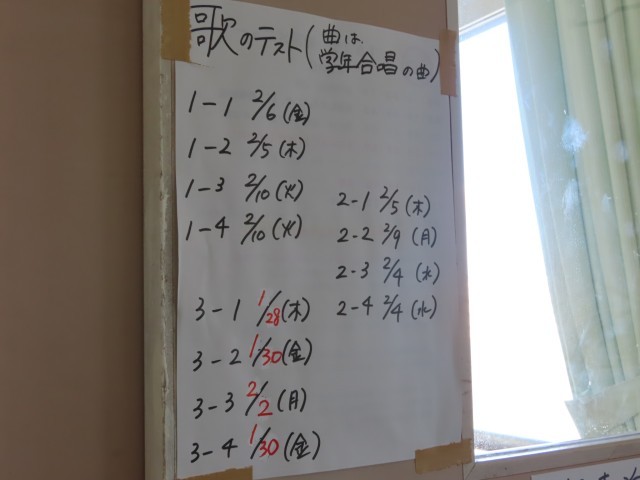 歌のテスト(曲は、学年合唱の曲)
1-1 2/6(金)
1-2 2/5(木)
1-3 2/10(火)
1-4 2/10(火)
2-1 2/5(木)
2-2 2/9(月)
2-3 2/4(水)
2-4 2/4(水)
3-1 1/28(木)
3-2 1/30(金)
3-3 2/2(月)
3-4 1/30(金)